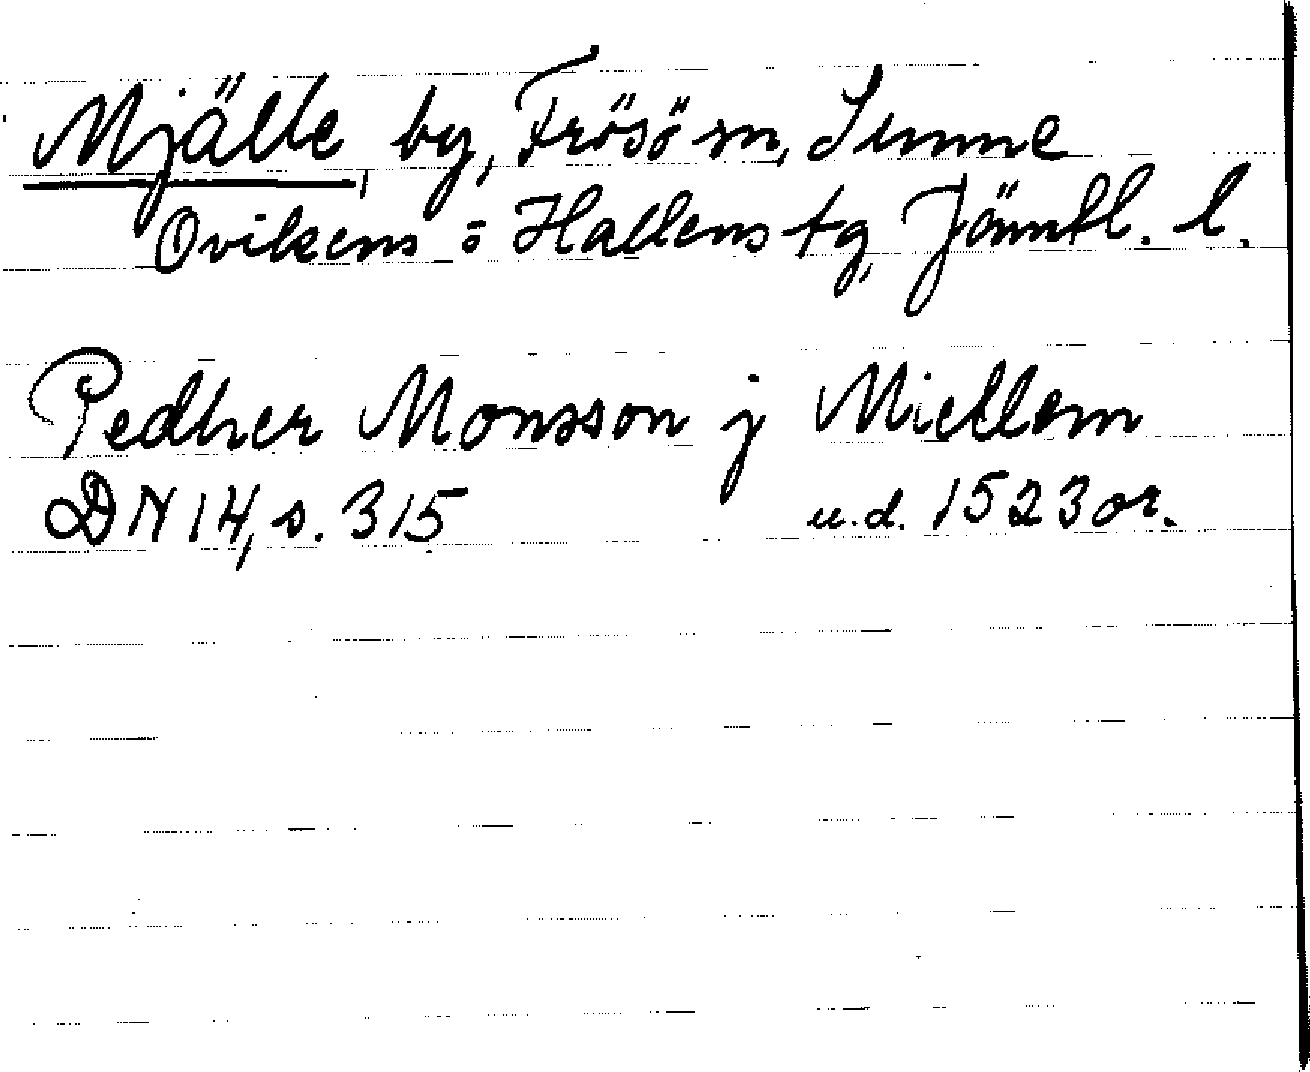 Mjälle, by, Frösö sn, Sunne
Ovikens o Hallens tg, Jämtl. l.
Pedher Monsson j Miellom
DN 14, s. 315 u.d. 1523 or.